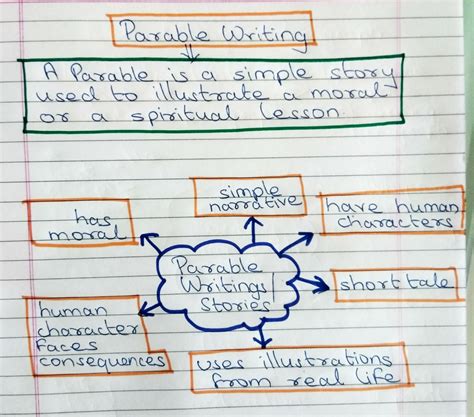 Parable Writing
A Parable is a simple story
used to illustrate a moral
or a spiritual lesson.
simple
narrative
has
moral
have human
characters
Parable
Writings/
Stories
short tale
human
character
faces
consequences
uses illustrations
from real life